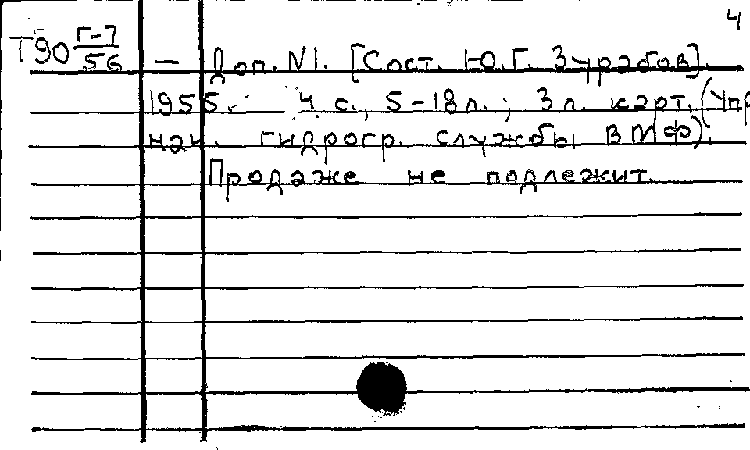 4
Т90 Г-7/56 — Доп. N1. [Сост. Ю.Г. Зурабов].
1955. 4 с., 5-18 л.; 3 л. карт. (Упр.
нач. гидрогр. службы ВМФ).
Продаже не подлежит.